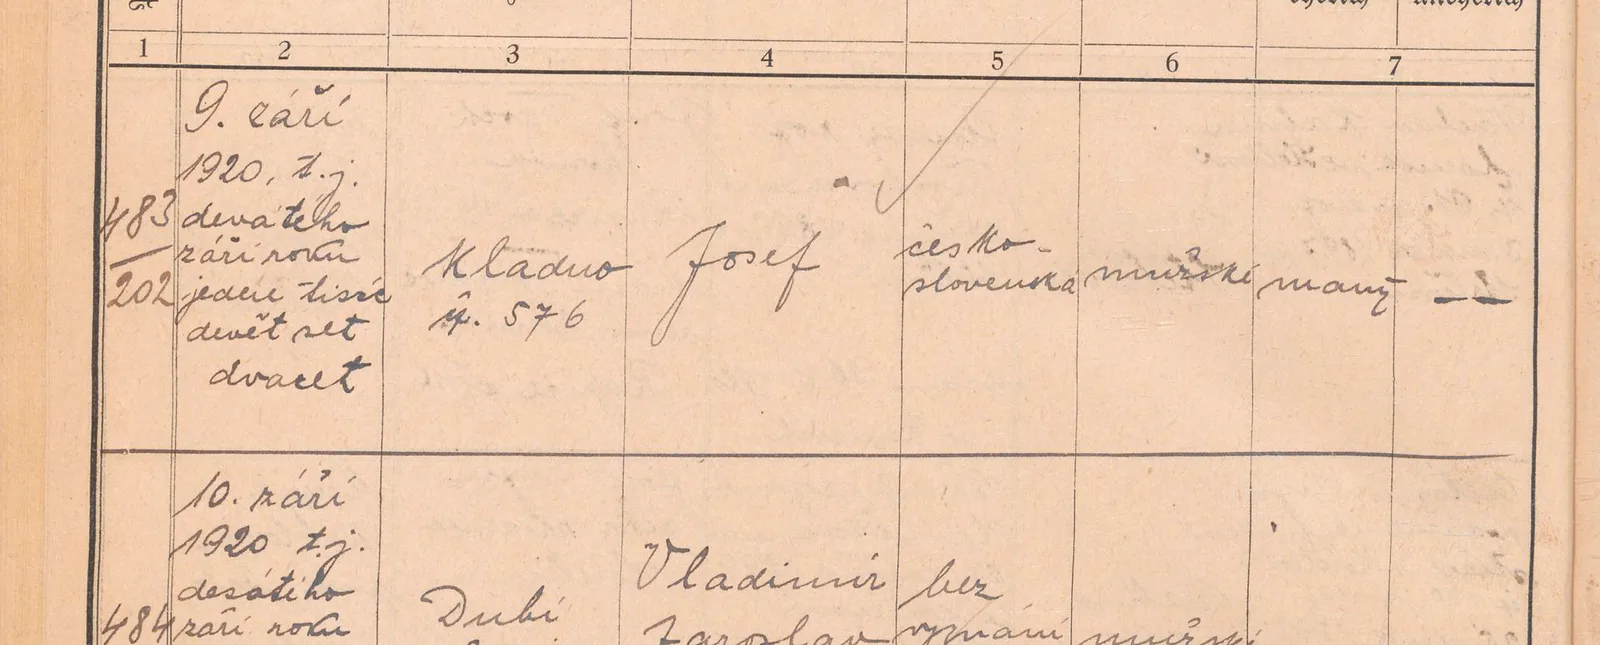 1 2 3 4 5 6 7
9. září
1920, t.j.
devátého
září roku
jeden tisíc
devět set
dvacet
483
202
Kladno
čp. 576
Josef
česko-
slovenská
mužské
manž
10. září
1920 t.j.
desátého
září roku
484
Dubí
Vladimír
Jaroslav
bez
vyznání
mužské